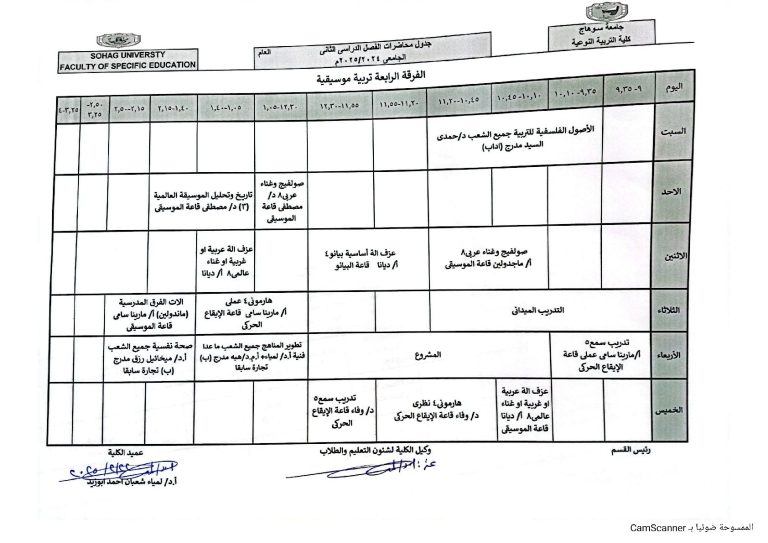 جامعة سوهاج
كلية التربية النوعية
جدول محاضرات الفصل الدراسى الثانى العام
الجامعى ٢٠٢٥/٢٠٢٤م
SOHAG UNIVERSTY
FACULTY OF SPECIFIC EDUCATION
الفرقة الرابعة تربية موسيقية
اليوم
٩-٩,٣٥
٩,٣٥-١٠,١٠
١٠,١٠-١٠,٤٥
١٠,٤٥-١١,٢٠
١١,٢٠-١١,٥٥
١١,٥٥-١٢,٣٠
١٢,٣٠-١,٠٥
١,٠٥-١,٤٠
١,٤٠-٢,١٥
٢,١٥-٢,٥٠
٢,٥٠-
٣,٢٥
٣,٢٥-٤
السبت
الأصول الفلسفية للتربية جميع الشعب د/حمدى
السيد مدرج (اداب)
الاحد
صولفيج وغناء
عربى٨ د/
مصطفى قاعة
الموسيقى
تاريخ وتحليل الموسيقة العالمية
(٣) د/ مصطفى قاعة الموسيقى
الاثنين
صولفيج وغناء عربى٨
أ/ ماجدولين قاعة الموسيقى
عزف الة أساسية بيانو٤
أ/ ديانا قاعة البيانو
عزف الة عربية او
غربية او غناء
عالمى٨ أ/ ديانا
الثلاثاء
التدريب الميدانى
هارمونى٤ عملى
أ/ مارينا سامى قاعة الإيقاع
الحركى
الات الفرق المدرسية
(ماندولين) أ/ مارينا سامى
قاعة الموسيقى
الأربعاء
تدريب سمع٥
أ/مارينا سامى عملى قاعة
الإيقاع الحركى
المشروع
تطوير المناهج جميع الشعب ما عدا
فنية أ.د/ لمياء+ أ.م.د/هبه مدرج (ب)
تجارة سابقا
صحة نفسية جميع الشعب
أ.د/ ميخائيل رزق مدرج
(ب) تجارة سابقا
الخميس
عزف الة عربية
او غربية او غناء
عالمى٨ أ/ ديانا
قاعة الموسيقى
هارمونى٤ نظرى
د/ وفاء قاعة الإيقاع الحركى
تدريب سمع٥
د/ وفاء قاعة الإيقاع
الحركى
رئيس القسم
وكيل الكلية لشئون التعليم والطلاب
عميد الكلية
أ.د/ لمياء شعبان احمد ابوزيد
الممسوحة ضوئيا بـ CamScanner